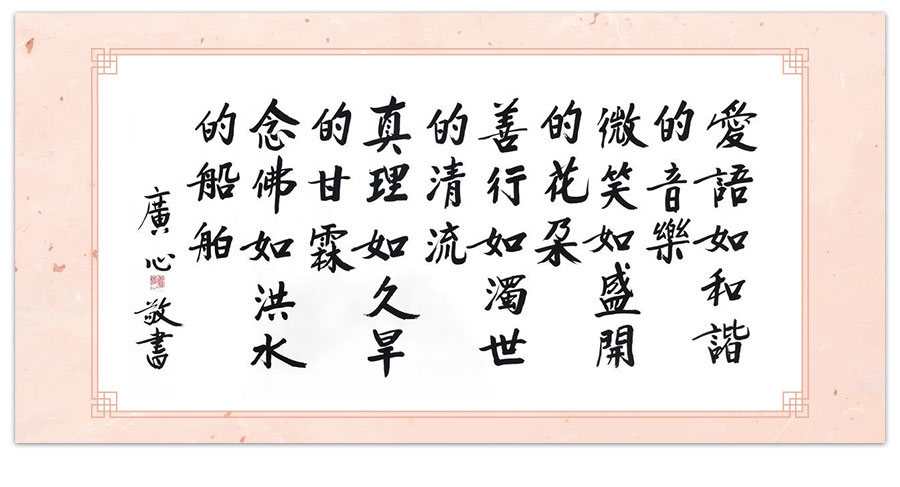 愛語如和諧
的音樂
微笑如盛開
的花朵
善行如濁世
的清流
真理如久旱
的甘霖
念佛如洪水
的船舶
廣心敬書